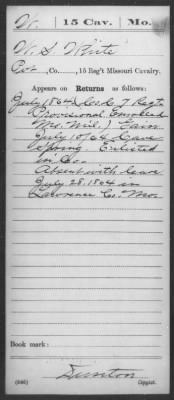 W. 15 Cav. Mo.
W. S. White
Pvt, Co. , 15 Reg't Missouri Cavalry.
Appears on Returns as follows:
July 1864
Provisional Enrolled
Mo. Mil.) Gain
July 10/64 Cave
Spring. Enlisted
in Co.
Absent with leave
July 28, 1864 in
Lawrence Co. Mo.
Book mark:
Dunton
(546) Copyist.